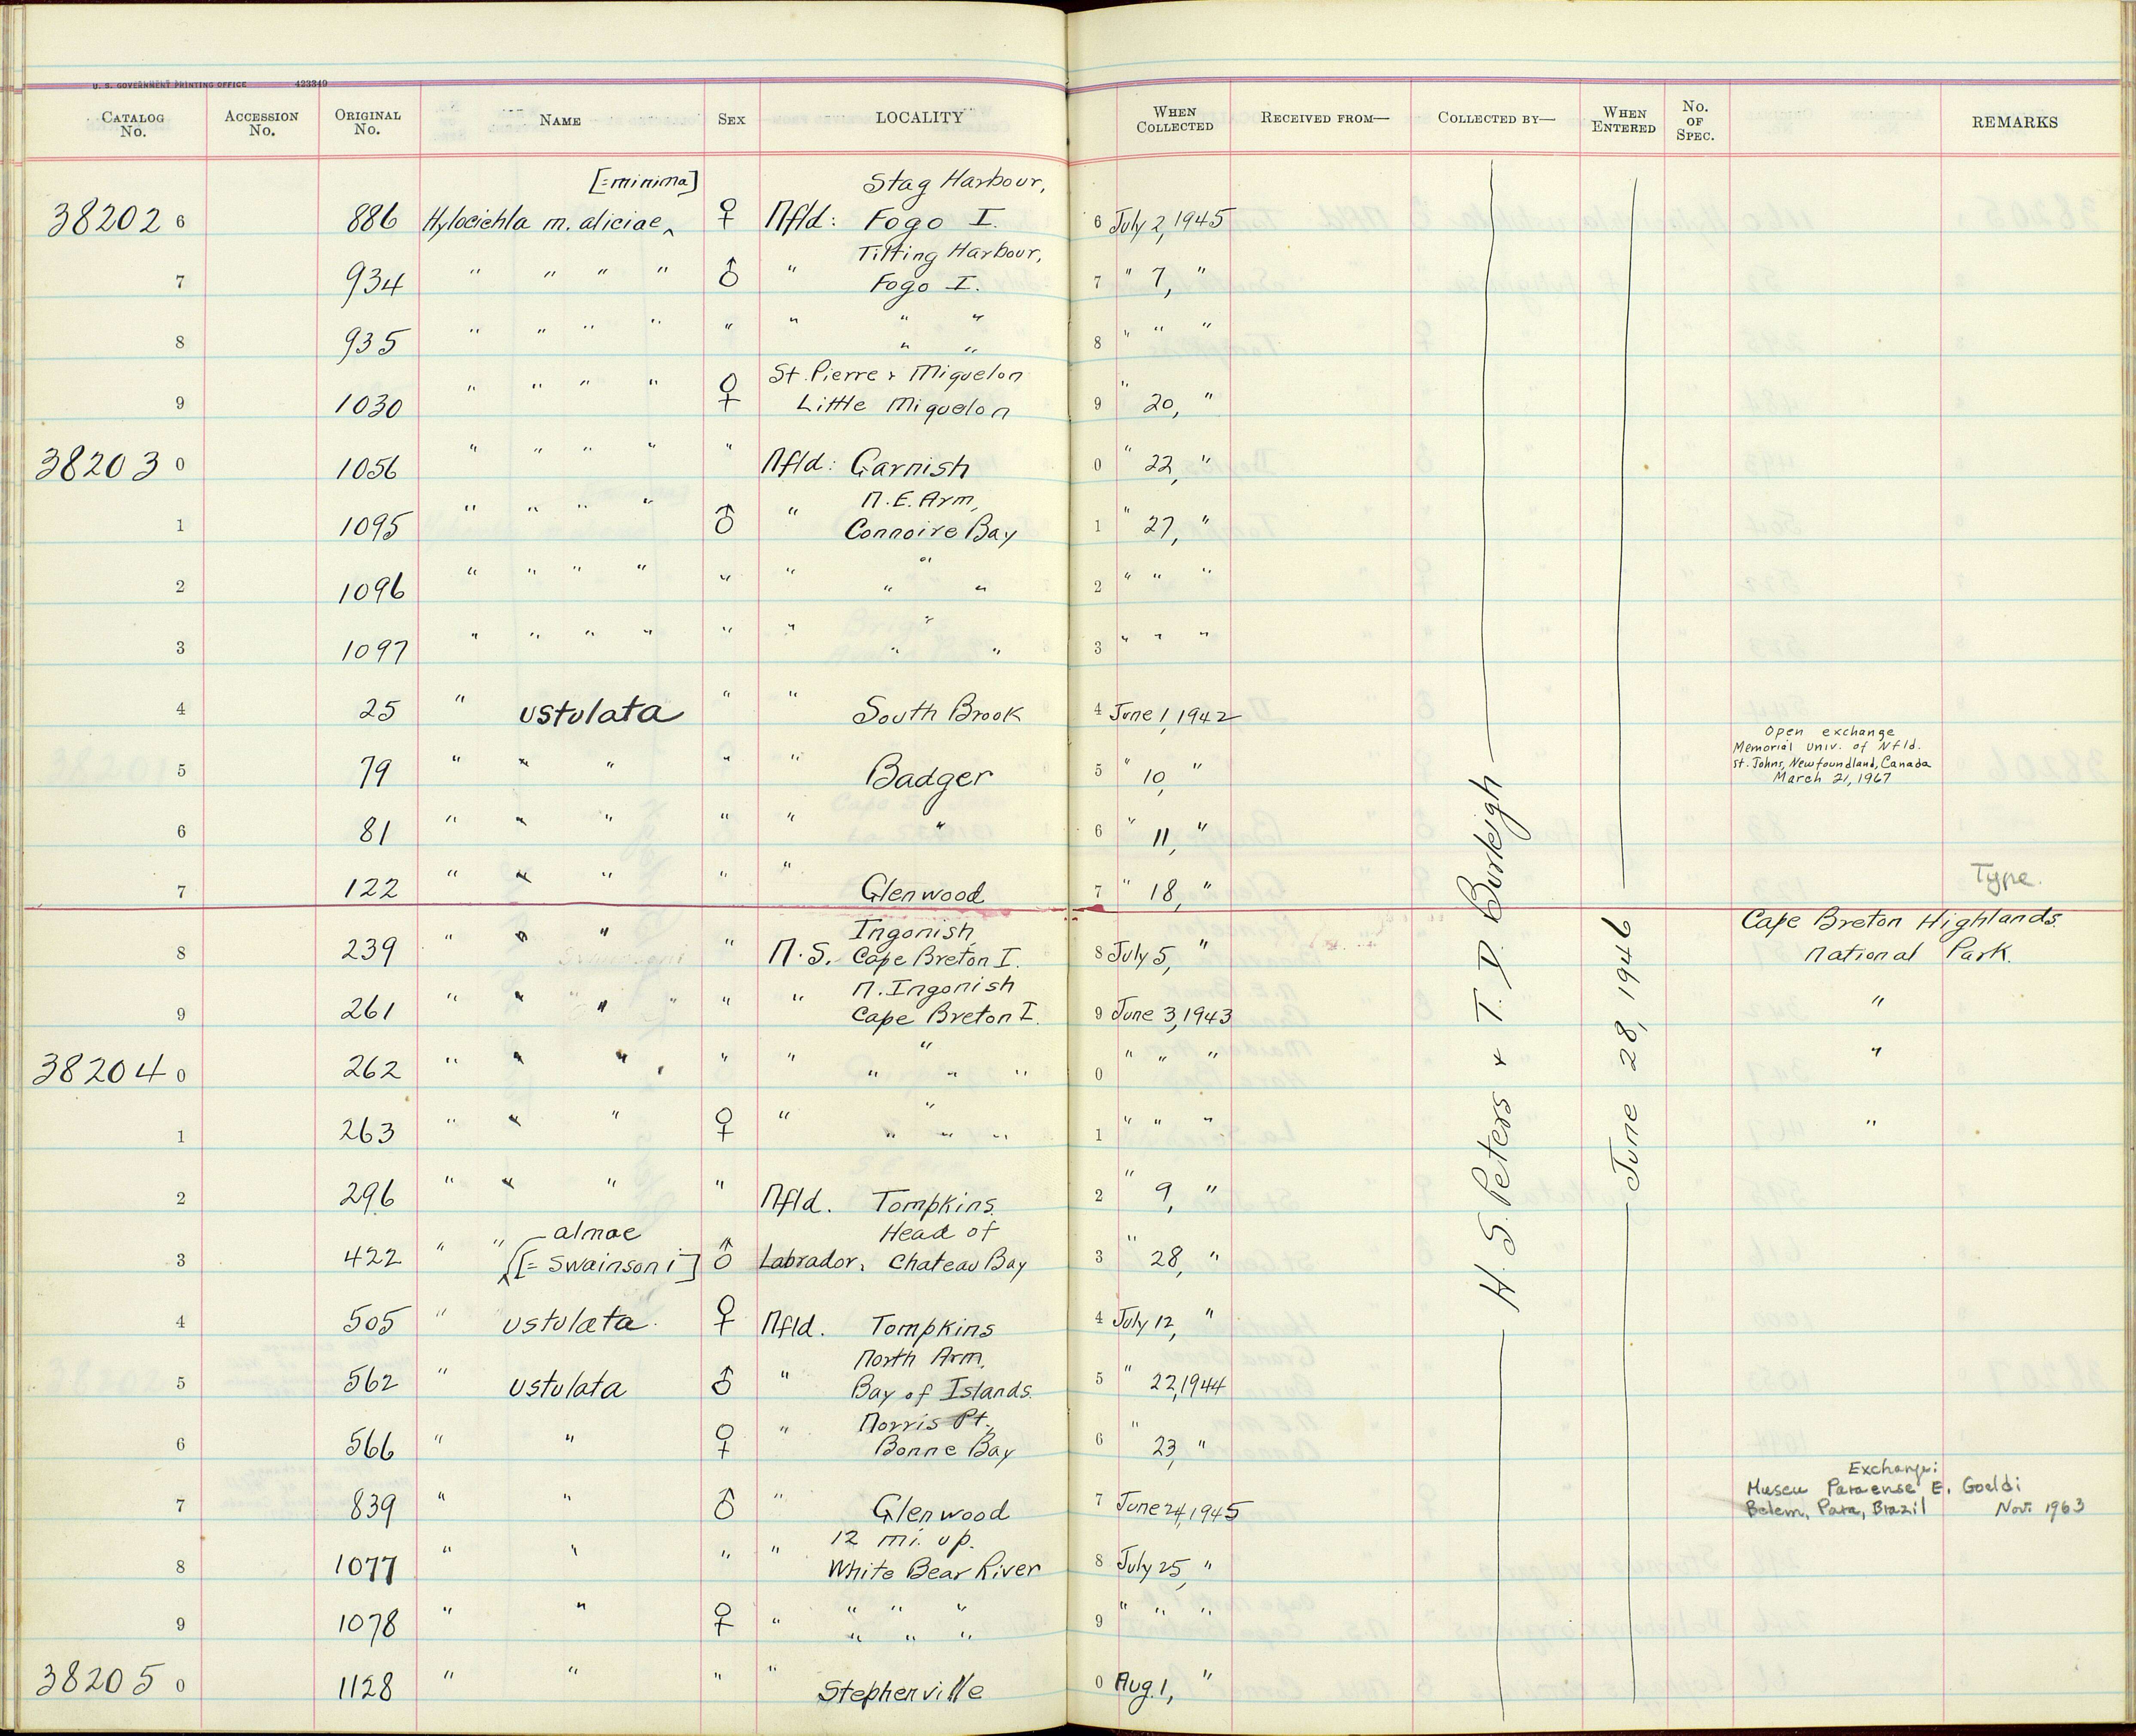 U. S. GOVERNMENT PRINTING OFFICE 423349
CATALOG No. ACCESSION No. ORIGINAL No. NAME SEX LOCALITY WHEN COLLECTED RECEIVED FROM— COLLECTED BY— WHEN ENTERED No. OF SPEC. REMARKS
[=minima] Stag Harbour,
38202 6 886 Hylocichla m. aliciae ‸ ♀ Nfld: Fogo I. 6 July 2, 1945
Tilting Harbour,
7 934 " " " " ♂ " Fogo I. 7 " 7, "
8 935 " " " " " " " " " " 8 " " "
St. Pierre & Miquelon
9 1030 " " " " ♀ Little Miquelon 9 " 20, "
38203 0 1056 " " " " " Nfld: Garnish 0 " 22, "
N.E. Arm,
1 1095 " " " " ♂ " Connoire Bay 1 " 27, "
2 1096 " " " " " " " " " 2 " " "
3 1097 " " " " " " " " " 3 " " "
4 25 " ustulata " " South Brook 4 June 1, 1942
Open exchange
Memorial Univ. of Nfld.
St. Johns, Newfoundland, Canada
March 21, 1967
5 79 " " " " " Badger 5 " 10, "
6 81 " " " " " " 6 " 11, "
7 122 " " " " " Glenwood 7 " 18, " Type.
Ingonish, Cape Breton Highlands
8 239 " " " " N.S. Cape Breton I. 8 July 5, " National Park.
N. Ingonish
9 261 " " " " " Cape Breton I. 9 June 3, 1943 "
38204 0 262 " " " " " " " " " 0 " " " "
1 263 " " " ♀ " " " " " 1 " " " "
2 296 " " " " Nfld. Tompkins. 2 " 9, "
almae Head of
3 422 " " [= Swainsoni] ♂ Labrador, Chateau Bay 3 " 28, "
4 505 " ustulata. ♀ Nfld. Tompkins 4 July 12, "
North Arm,
5 562 " ustulata ♂ " Bay of Islands. 5 " 22, 1944
Norris Pt.,
6 566 " " ♀ " Bonne Bay 6 " 23, "
Exchange:
Museu Paraense E. Goeldi
7 839 " " ♂ " Glenwood 7 June 24, 1945 Belem, Para, Brazil Nov. 1963
12 mi. up.
8 1077 " " " " White Bear River 8 July 25, "
9 1078 " " ♀ " " " " " " " 9 " " "
38205 0 1128 " " " " Stephenville 0 Aug. 1, "
H. S. Peters & T. D. Burleigh
June 28, 1946